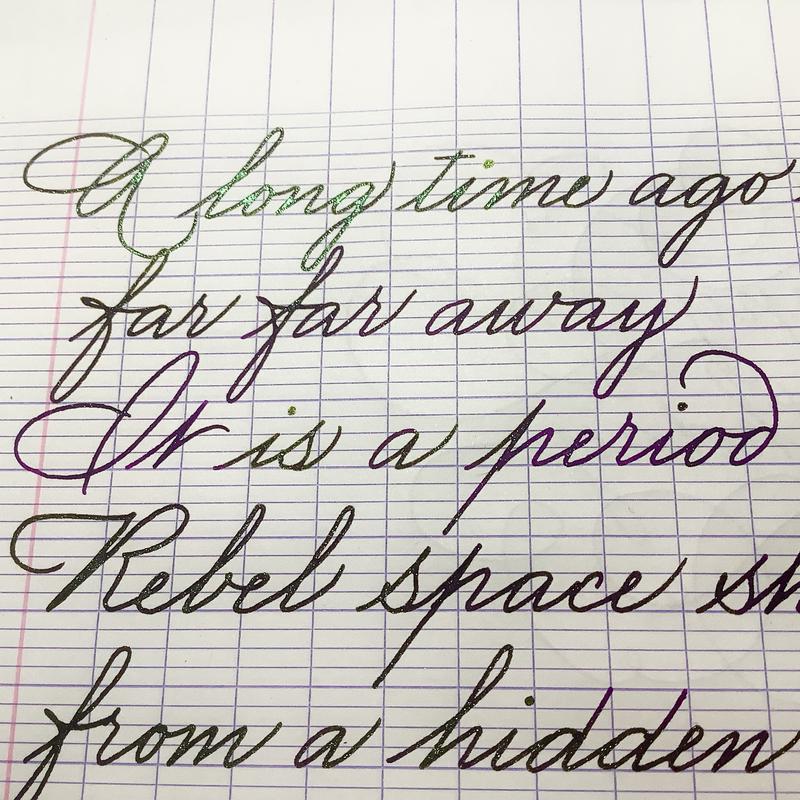 A long time ago
far far away
It is a period
Rebel space
from a hidden